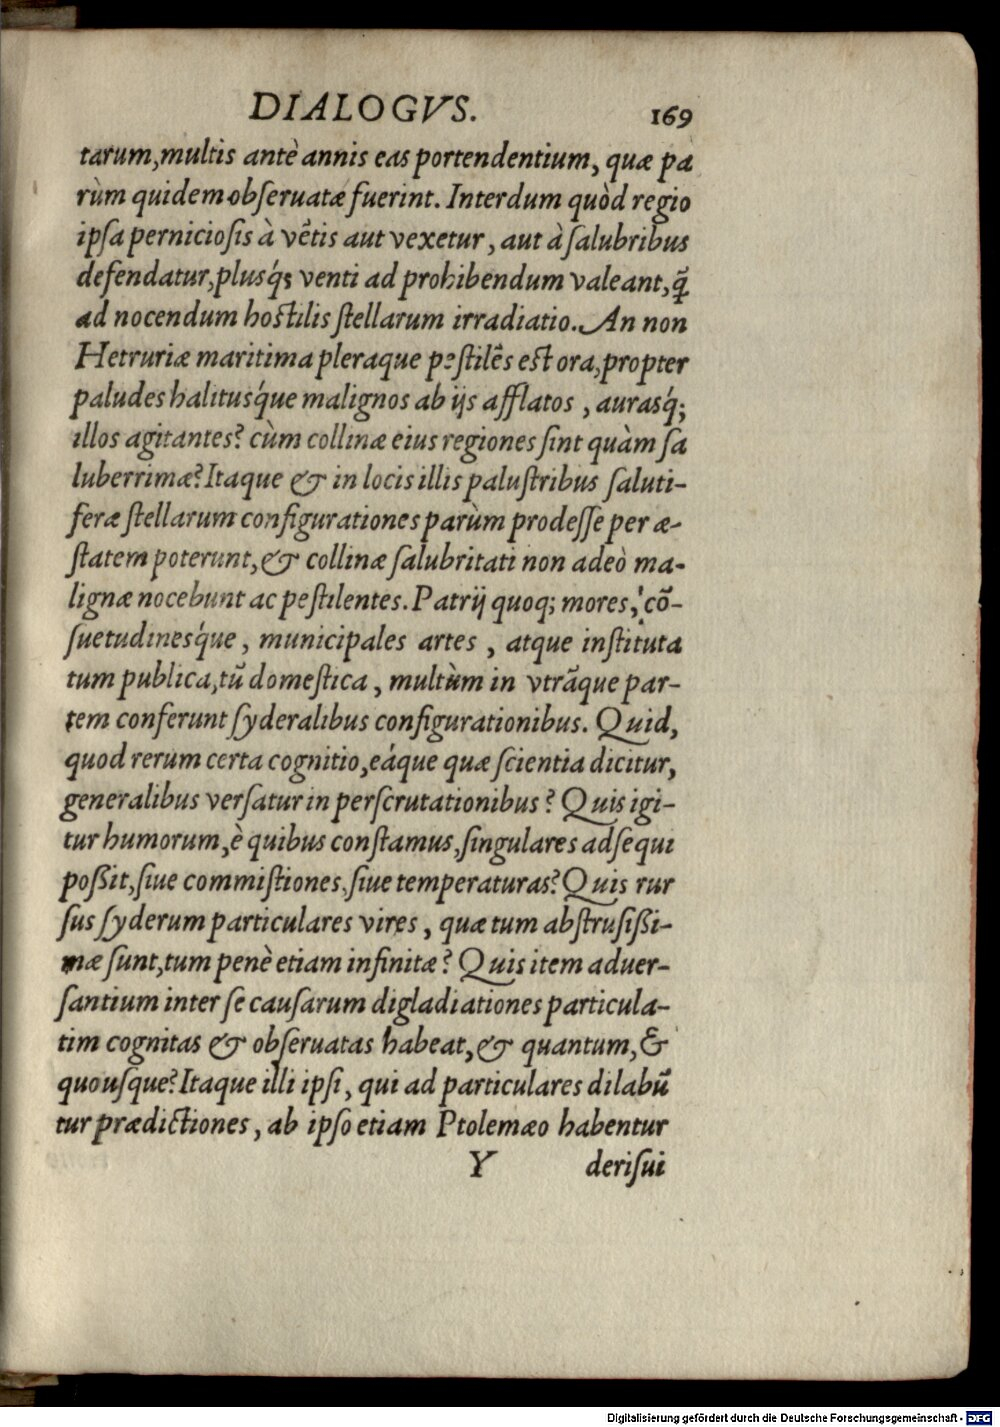 DIALOGVS. 169
tarum, multis antè annis eas portendentium, quæ pa
rùm quidem obſeruatæ fuerint. Interdum quòd regio
ipſa pernicioſis à vẽtis aut vexetur, aut à ſalubribus
defendatur, pluſq́; venti ad prohibendum valeant, q̃
ad nocendum hoſtilis ſtellarum irradiatio. An non
Hetruriæ maritima pleraque peſtilẽs eſt ora, propter
paludes halituſq́ue malignos ab ijs afflatos, auraſq́;
illos agitantes? cùm collinæ eius regiones ſint quàm ſa
luberrimæ? Itaque & in locis illis paluſtribus ſaluti-
feræ ſtellarum configurationes parùm prodeſſe per æ-
ſtatem poterunt, & collinæ ſalubritati non adeò ma-
lignæ nocebunt ac peſtilentes. Patrij quoq; mores, cõ-
ſuetudineſq́ue, municipales artes, atque inſtituta
tum publica, tũ domeſtica, multùm in vtrãque par-
tem conferunt ſyderalibus configurationibus. Quid,
quod rerum certa cognitio, eáque quæ ſcientia dicitur,
generalibus verſatur in perſcrutationibus? Quis igi-
tur humorum, è quibus conſtamus, ſingulares adſequi
poßit, ſiue commiſtiones, ſiue temperaturas? Quis rur
ſus ſyderum particulares vires, quæ tum abſtruſißi-
mæ ſunt, tum penè etiam infinitæ? Quis item aduer-
ſantium inter ſe cauſarum digladiationes particula-
tim cognitas & obſeruatas habeat, & quantum, &
quouſque? Itaque illi ipſi, qui ad particulares dilabũ
tur prædictiones, ab ipſo etiam Ptolemæo habentur
Y deriſui
Digitalisierung gefördert durch die Deutsche Forschungsgemeinschaft - DFG